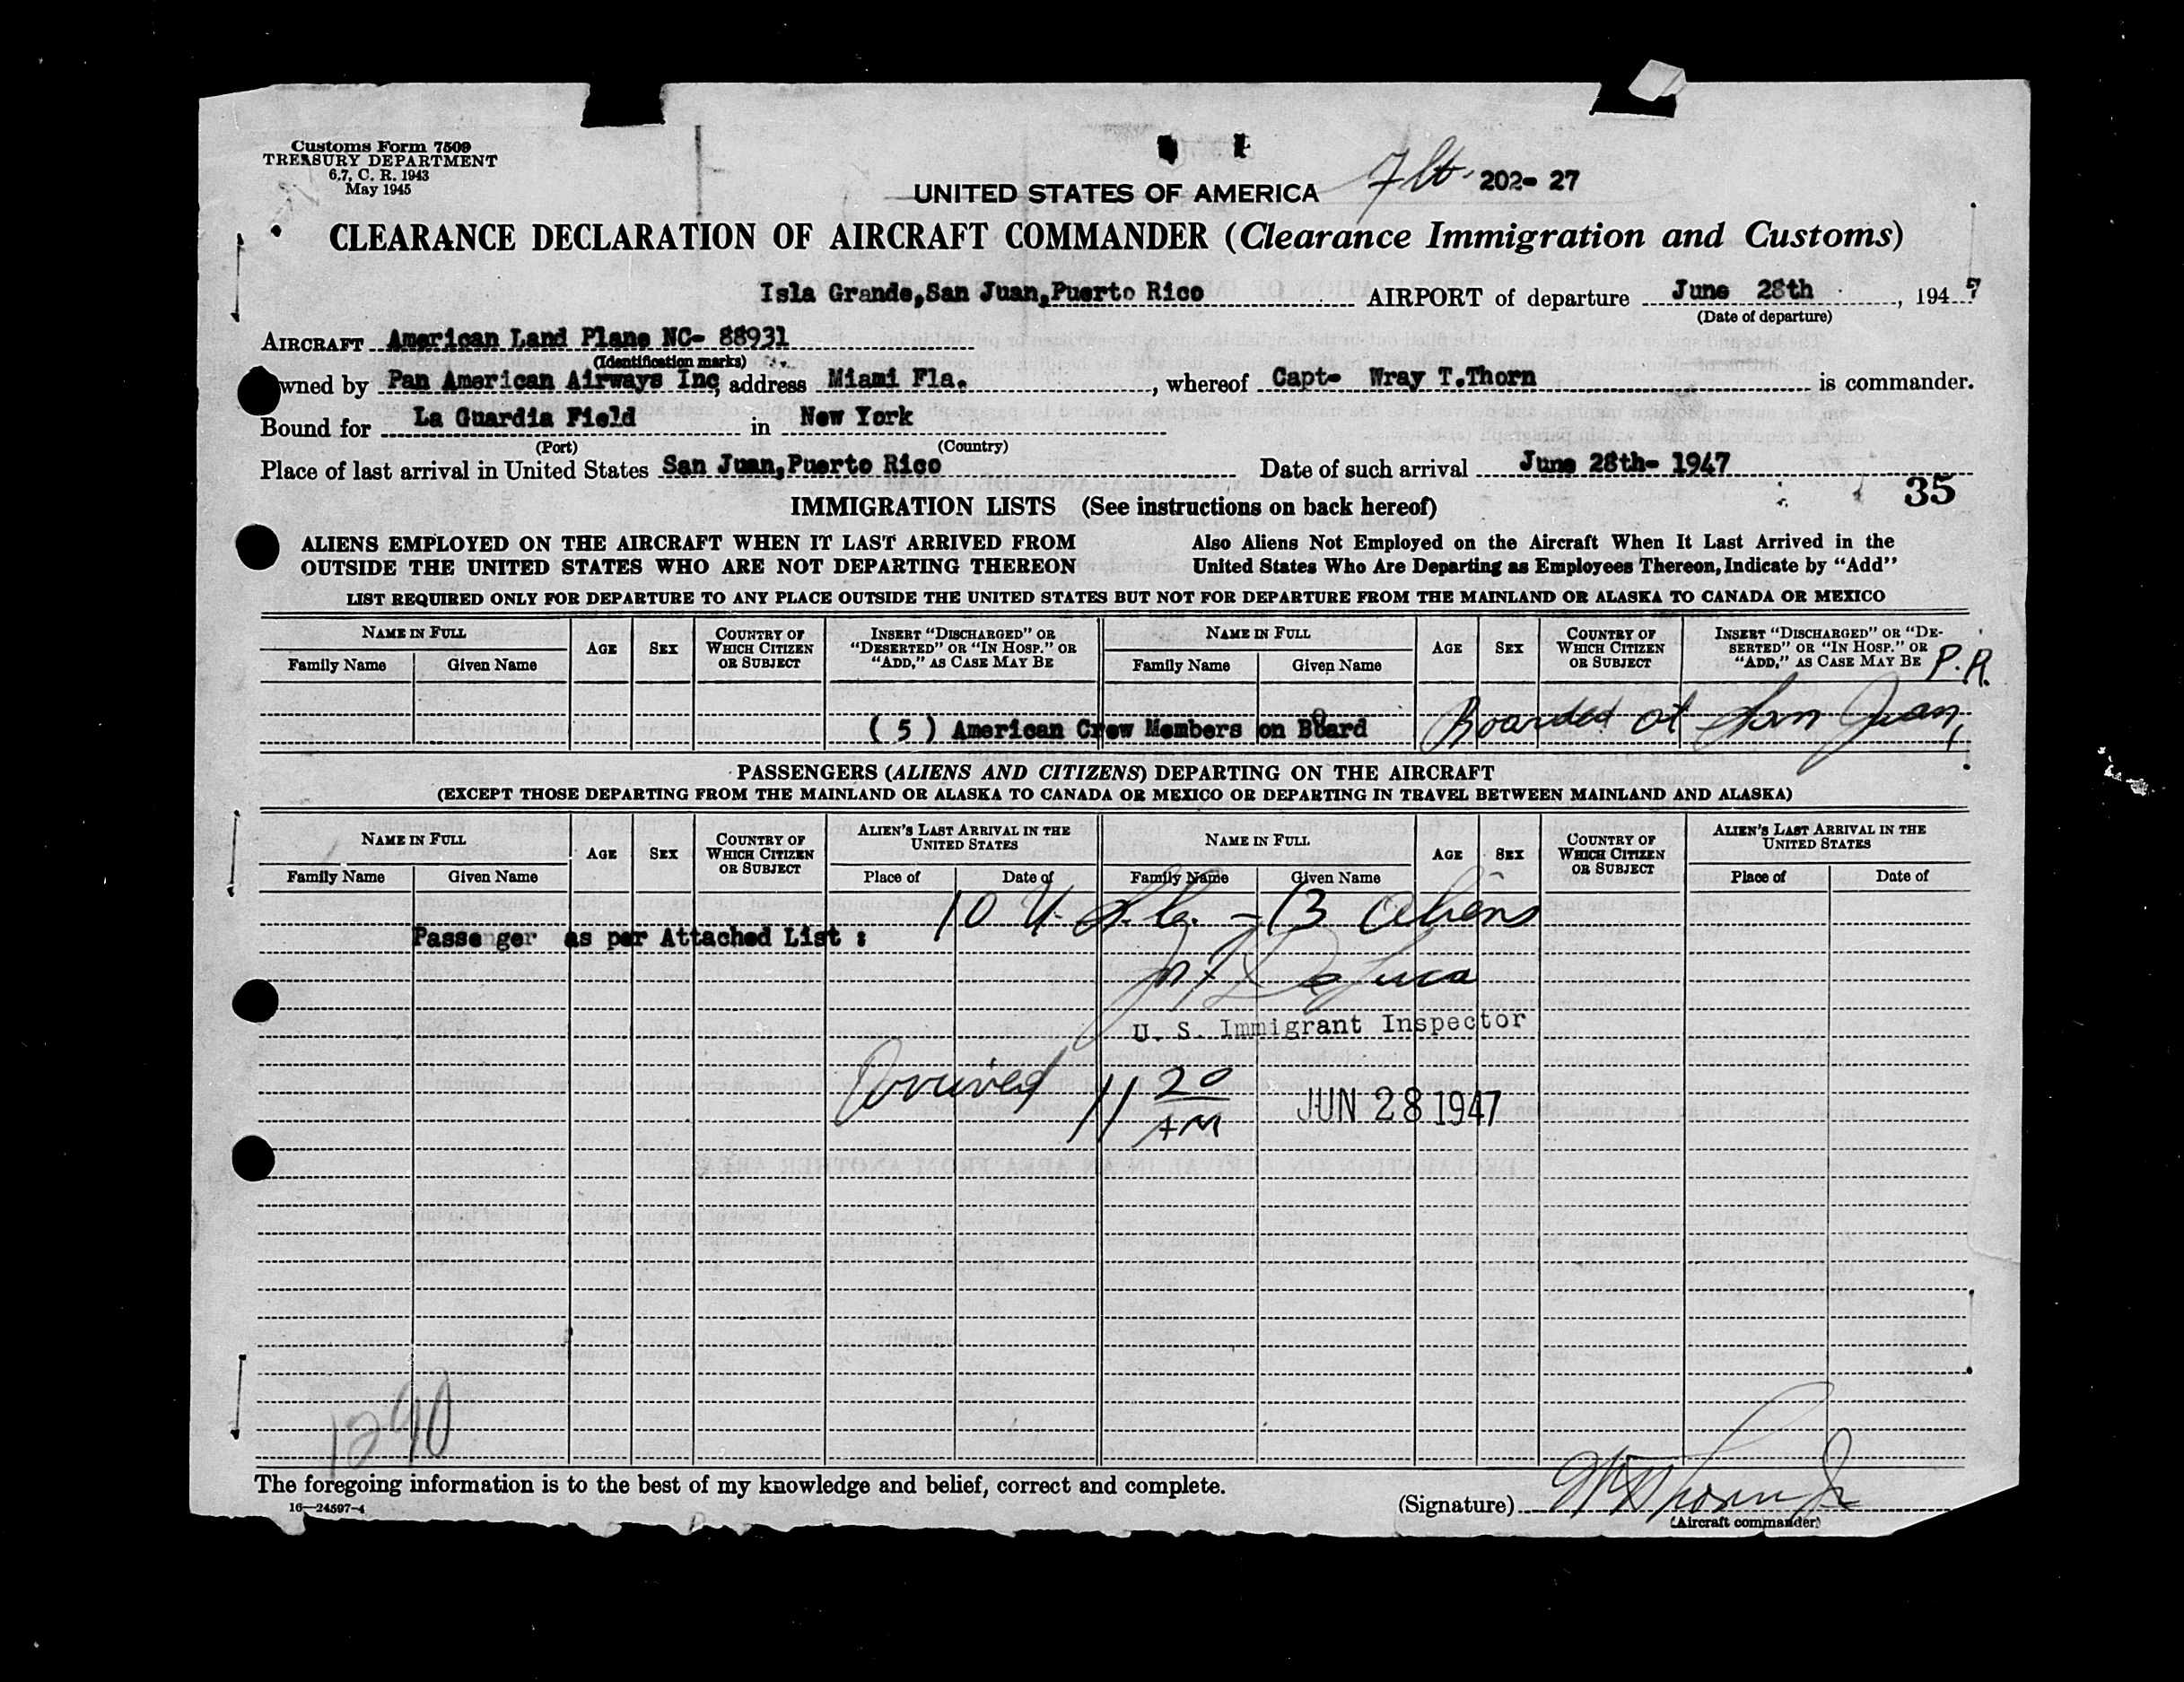 Customs Form 7509
TREASURY DEPARTMENT
6.7, C. R. 1943
May 1945
UNITED STATES OF AMERICA
Flt. 202- 27
CLEARANCE DECLARATION OF AIRCRAFT COMMANDER (Clearance Immigration and Customs)
Isla Grande,San Juan,Puerto Rico AIRPORT of departure June 28th, 1947
(Date of departure)
AIRCRAFT American Land Plane NC- 88931
(Identification marks)
Owned by Pan American Airways Inc, address Miami Fla., whereof Capt- Wray T.Thorn is commander.
Bound for La Guardia Field in New York
(Port) (Country)
Place of last arrival in United States San Juan,Puerto Rico Date of such arrival June 28th- 1947
35
IMMIGRATION LISTS (See instructions on back hereof)
ALIENS EMPLOYED ON THE AIRCRAFT WHEN IT LAST ARRIVED FROM OUTSIDE THE UNITED STATES WHO ARE NOT DEPARTING THEREON
Also Aliens Not Employed on the Aircraft When It Last Arrived in the United States Who Are Departing as Employees Thereon, Indicate by "Add"
LIST REQUIRED ONLY FOR DEPARTURE TO ANY PLACE OUTSIDE THE UNITED STATES BUT NOT FOR DEPARTURE FROM THE MAINLAND OR ALASKA TO CANADA OR MEXICO
NAME IN FULL
Family Name Given Name
AGE SEX
COUNTRY OF WHICH CITIZEN OR SUBJECT
INSERT "DISCHARGED" OR "DESERTED" OR "IN HOSP." OR "ADD," AS CASE MAY BE
NAME IN FULL
Family Name Given Name
AGE SEX
COUNTRY OF WHICH CITIZEN OR SUBJECT
INSERT "DISCHARGED" OR "DE-SERTED" OR "IN HOSP." OR "ADD," AS CASE MAY BE
P.R.
( 5 ) American Crew Members on Board Boarded at San Juan,
PASSENGERS (ALIENS AND CITIZENS) DEPARTING ON THE AIRCRAFT
(EXCEPT THOSE DEPARTING FROM THE MAINLAND OR ALASKA TO CANADA OR MEXICO OR DEPARTING IN TRAVEL BETWEEN MAINLAND AND ALASKA)
NAME IN FULL
Family Name Given Name
AGE SEX
COUNTRY OF WHICH CITIZEN OR SUBJECT
ALIEN'S LAST ARRIVAL IN THE UNITED STATES
Place of Date of
NAME IN FULL
Family Name Given Name
AGE SEX
COUNTRY OF WHICH CITIZEN OR SUBJECT
ALIEN'S LAST ARRIVAL IN THE UNITED STATES
Place of Date of
10 U.S.Cs. - 13 Aliens
Passenger as per Attached List :
U. S. Immigrant Inspector
Arrived 11 20 AM JUN 28 1947
1290
The foregoing information is to the best of my knowledge and belief, correct and complete.
16—24597-4
(Signature) W T Thorn Jr
(Aircraft commander)